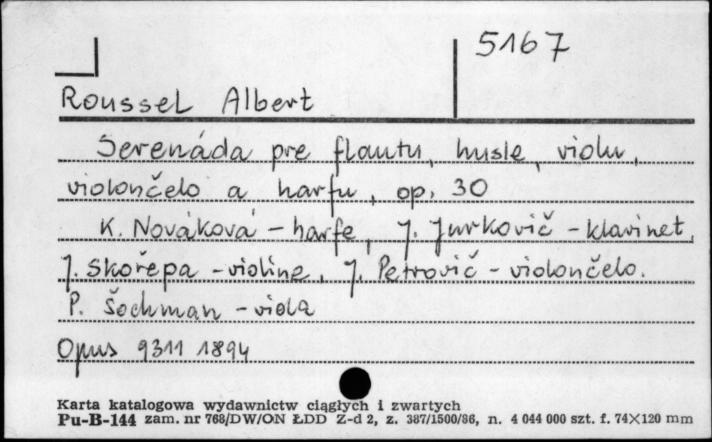 5167
Roussel Albert
Serenáda pre flautu, husle, violu,
violončelo a harfu, op. 30
K. Nováková – harfe, J. Jurkovič – klarinet,
J. Skořepa – violine, J. Petrovič – violončelo.
P. Šochman – viola
Opus 9311 1894
Karta katalogowa wydawnictw ciągłych i zwartych
Pu-B-144 zam. nr 768/DW/ON ŁDD Z-d 2, z. 387/1500/86, n. 4 044 000 szt. f. 74X120 mm